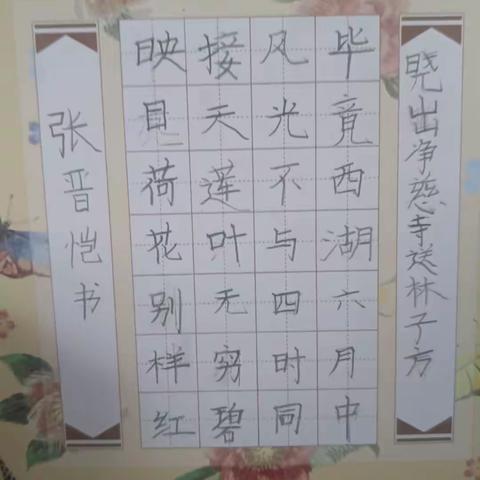 晓出净慈寺送林子方
毕竟西湖六月中
风光不与四时同
接天莲叶无穷碧
映目荷花别样红
张晋恺书